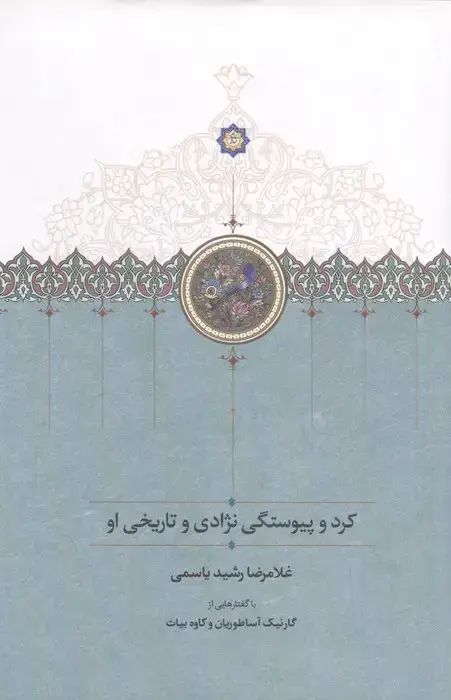 کرد و پیوستگی نژادی و تاریخی او
غلامرضا رشید یاسمی
با گفتارهایی از
گارنیک آساطوریان و کاوه بیات